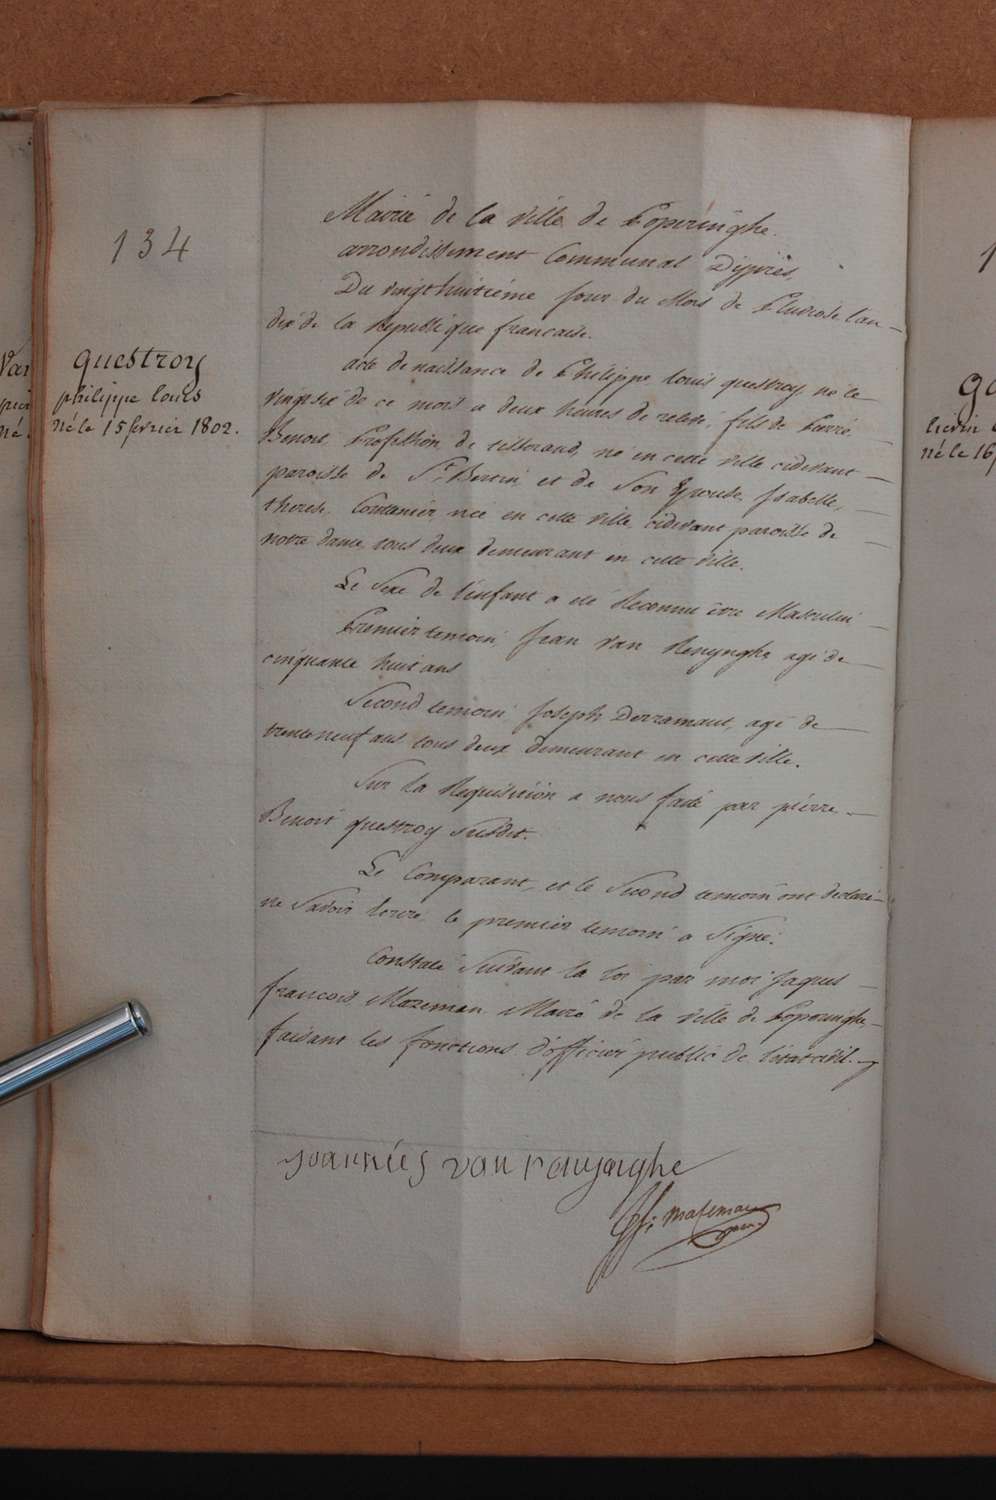 134
questroy
philippe louis
né le 15 fevrier 1802.
Mairie de la ville de Poperinghe.
arrondissement Communal D'ypres
Du vingthuitième jour du Mois de Pluviose l'an
dix de la Republique francaise.
acte de naissance de Philippe louis questroy, né le
vingtsix de ce mois a deux heures de relevé, fils de Pierre
Benoit, Profession de tisserand, né en cette ville cidevant
paroisse de St Bertin et de Son Epouse Isabelle
therese, née en cette ville, cidevant paroisse de
notre dame, tous deux demeurant en cette ville.
Le Sexe de l'enfant a été Reconnu être Masculin
Premier temoin, Jean Van Renynghe agé de
cinquante huit ans
Second temoin Joseph Derramaut, agé de
trenteneuf ans tous deux demeurant en cette ville.
Sur la Requisition a nous faite par pierre
Benoit questroy susdit.
Le Comparant, et le Second temoin ont declaré
ne Savoir ecrire le premier temoin a Signé.
Constaté Suivant la loi par moi Jaques
francois Mazeman Maire de la ville de Poperinghe
faisant les fonctions d'officier public de l'etat civil.
joannies van renynghe
Jf: Mazeman
maire
Van
né
1
né le 16